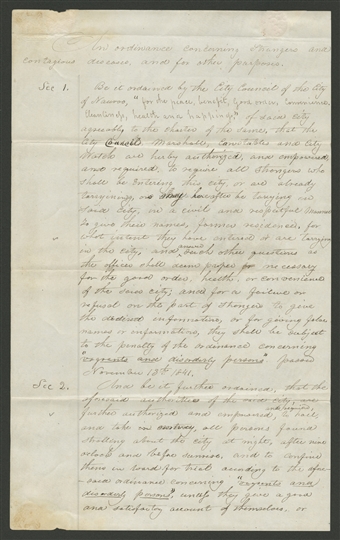 An ordinance concerning strangers and
contagious diseases, and for other purposes.
Sec 1. Be it ordained by the City Council of the City
of Nauvoo, "for the peace, benefit, good order, convenience,
cleanliness, health and happiness" of said city
agreeably to the charter of the same, that the
City Council Marshall, Constables and City
Watch are hereby authorized, and empowered,
and required, to require all strangers who
shall be entering this city, or are already
tarrying, or may hereafter be tarrying in
said city, in a civil and respectful manner
to give their names, former residence, for
what intent they have entered or are tarrying
in the city, and answer such other questions as
the officer shall deem proper or necessary
for the good order, health, or convenience
of the said city, and for a failure or
refusal on the part of strangers to give
the desired information, or for giving false
names or information, they shall be subject
to the penalty of the ordinance concerning
"vagrants and disorderly persons" passed
November 13th 1841.
Sec 2. And be it further ordained, that the
aforesaid authorities of the said city, are
further authorized and empowered, and required, to hail
and take in all persons found
strolling about the city at night, after nine
oclock and before sunrise, and to confine
them in ward for trial according to the afore-
said ordinance concerning "vagrants and
disorderly persons", unless they give a good
and satisfactory account of themselves, or